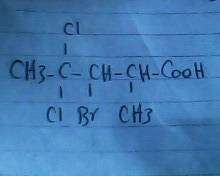 Cl
CH3-C-CH-CH-COOH
Cl Br CH3